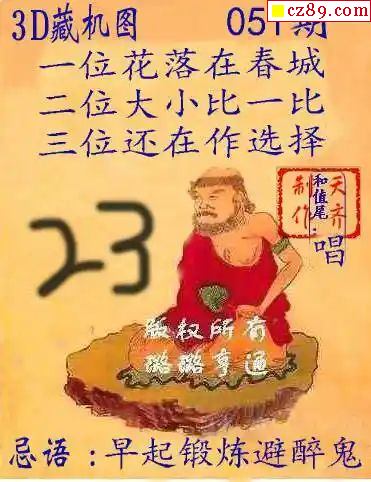 cz89.com
3D藏机图 051期
一位花落在春城
二位大小比一比
三位还在作选择
天齐
制作
和值尾:唱
23
版权所有
璐璐亨通
忌语:早起锻炼避醉鬼